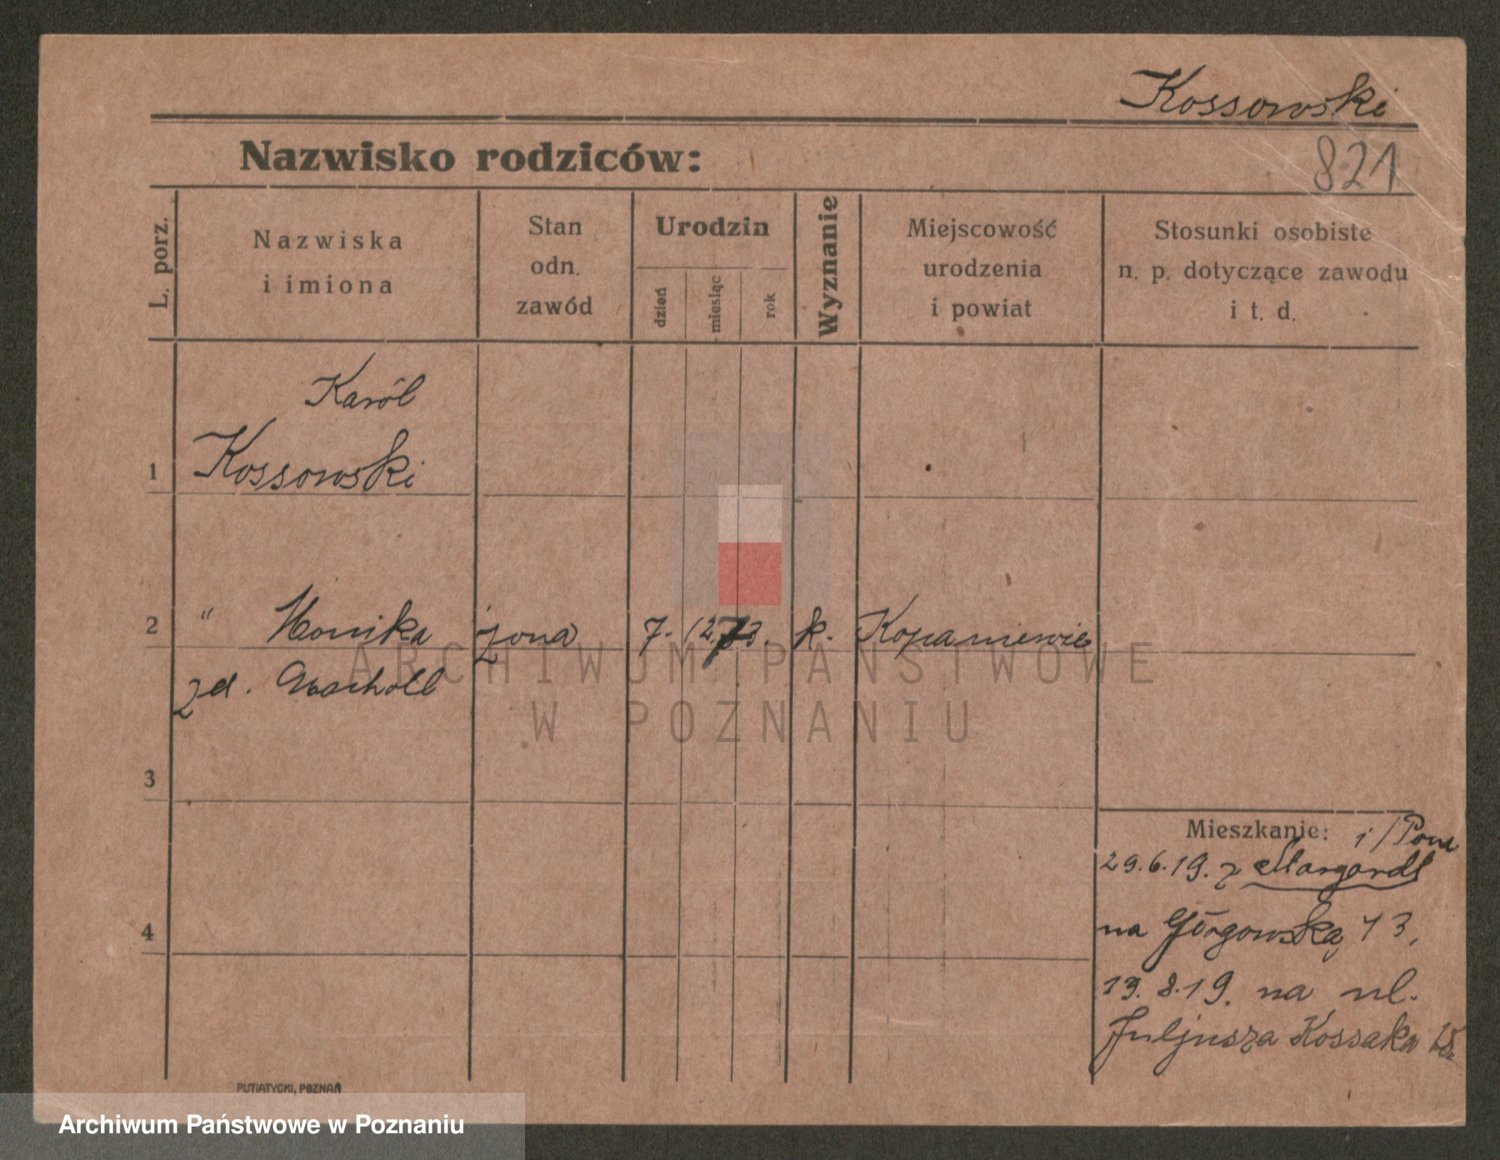 Kossowski
Nazwisko rodziców:
821
L. porz.
Nazwiska
i imiona
Stan
odn.
zawód
Urodzin
dzień
miesiąc
rok
Wyznanie
Miejscowość
urodzenia
i powiat
Stosunki osobiste
n. p. dotyczące zawodu
i t. d.
Karól
1 Kossowski
2 " Monika żona 7. 12. 73. k. Kopaniewie
zd.
3
4
Mieszkanie:
29.6.19. z
na Głogowską 73,
19.8.19. na ul.
Juljusza Kossaka
PUTIATYCKI, POZNAŃ
ARCHIWUM PAŃSTWOWE
W POZNANIU
Archiwum Państwowe w Poznaniu